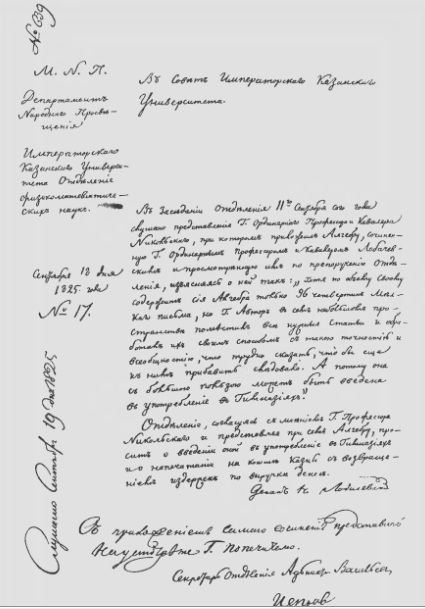 № 639
М. Н. П.
Департаментъ
Народн. Просвѣ-
щенія
Императорскаго
Казанскаго Универси-
тета Отдѣленіе
физикоматематиче-
скихъ наукъ.
Сентября 18 дня
1825 года
№ 17.
Въ Совѣтъ Императорскаго Казанскаго
Университета.
Въ засѣданіи Отдѣленія 11го Сентября сего года
слушано представленіе Г. Ординарнаго Профессора и Кавалера
Никольскаго, при которомъ приложилъ Алгебру, сочинен-
ную Г. Ординарнымъ Профессоромъ и Кавалеромъ Лобачев-
скимъ и просмотренную имъ по препорученію Отдѣ-
ленія, изъясняясь о ней такъ: хотя по объему своему
содержитъ сія Алгебра только 96 четвертокъ мел-
каго письма, но Г. Авторъ въ семъ небольшомъ про-
странствѣ помѣстилъ всѣ нужныя статьи и обра-
боталъ ихъ своимъ способомъ съ такою точностію и
всеобщностію, что трудно сказать, что бы еще
къ нимъ прибавить слѣдовало. А потому она
съ большою пользою можетъ быть введена
въ употребленіе въ Гимназіяхъ.
Отдѣленіе, согласуясь съ мнѣніемъ Г. Профессора
Никольскаго и представляя при семъ Алгебру, про-
ситъ о введеніи оной въ употребленіе въ Гимназіяхъ
и о напечатаніи на кошtъ казны съ возвраще-
ніемъ издержекъ по выручкѣ денегъ.
Деканъ Н. Лобачевскій
Съ приложеніемъ самаго сочиненія представить
на усмотрѣніе Г. Попечителю.
Секретарь Отдѣленія Адъюнктъ
Слушано Сентября 19 дня 1825